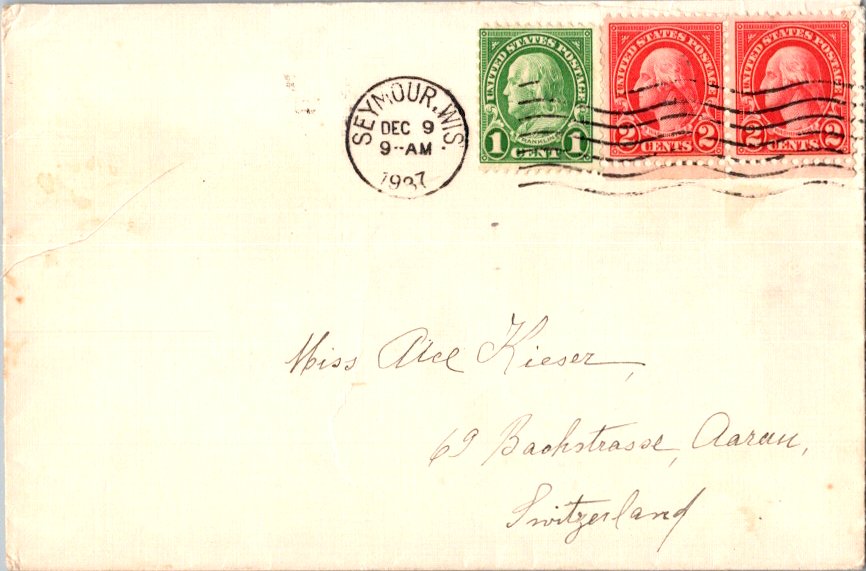 SEYMOUR, WIS.
DEC 9
9--AM
1937
UNITED STATES POSTAGE
FRANKLIN
1 CENT 1
UNITED STATES POSTAGE
2 CENTS 2
UNITED STATES POSTAGE
2 CENTS 2
Miss Alce Kieser,
69 Bachstrasse, Aarau,
Switzerland